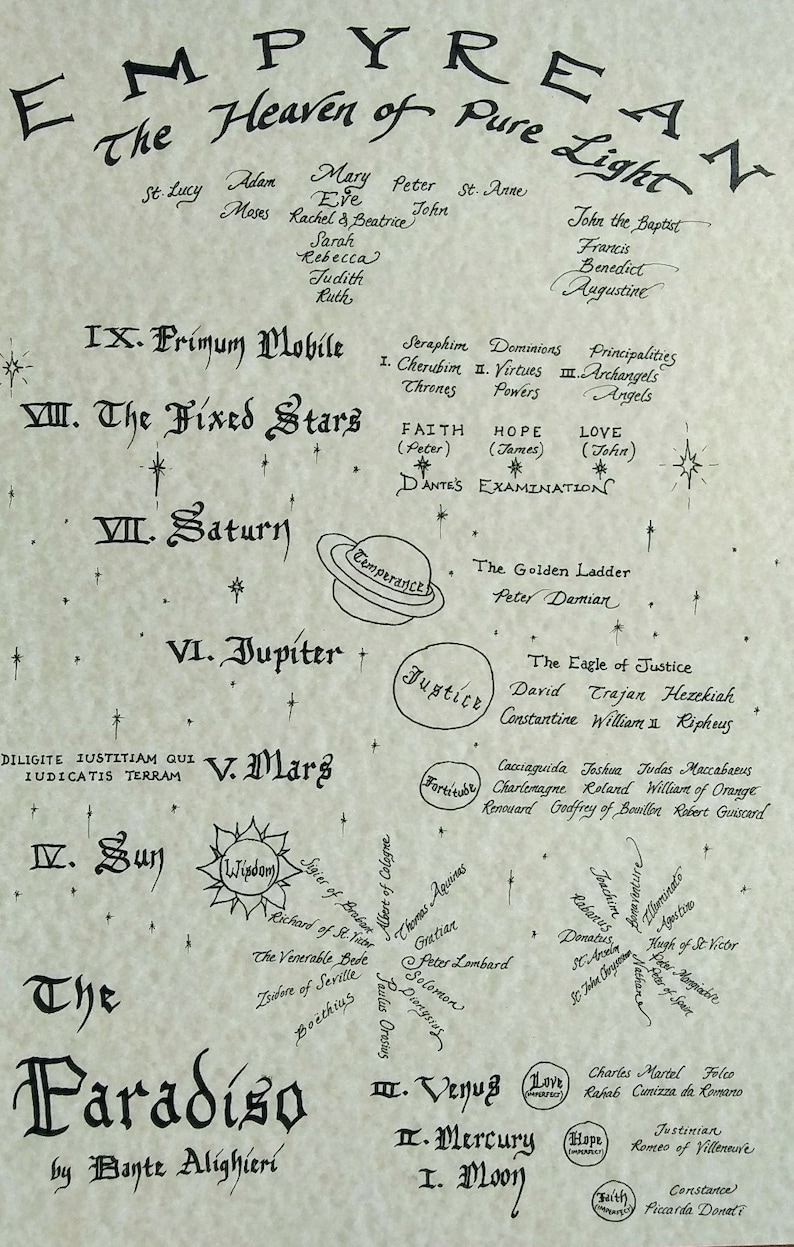 EMPYREAN
The Heaven of Pure Light
St. Lucy Adam Mary Peter St. Anne
Moses Eve John
Rachel & Beatrice
Sarah
Rebecca
Judith
Ruth
John the Baptist
Francis
Benedict
Augustine
IX. Primum Mobile
I. Seraphim Cherubim Thrones
II. Dominions Virtues Powers
III. Principalities Archangels Angels
VIII. The Fixed Stars
FAITH HOPE LOVE
(Peter) (James) (John)
DANTE'S EXAMINATION
VII. Saturn
Temperance
The Golden Ladder
Peter Damian
VI. Jupiter
Justice
The Eagle of Justice
David Trajan Hezekiah
Constantine William II Ripheus
DILIGITE IUSTITIAM QUI
IUDICATIS TERRAM
V. Mars
Fortitude
Cacciaguida Joshua Judas Maccabaeus
Charlemagne Roland William of Orange
Renouard Godfrey of Bouillon Robert Guiscard
IV. Sun
Wisdom
Sigier of Brabant
Richard of St. Victor
The Venerable Bede
Isidore of Seville
Boëthius
Albert of Cologne
Thomas Aquinas
Gratian
Peter Lombard
Solomon
Dionysius
Paulus Orosius
Joachim
Rabanus
Donatus
St. Anselm
St. John Chrysostom
Bonaventure
Illuminato
Agostino
Hugh of St. Victor
Peter Mangiadore
Peter of Spain
Nathan
The
Paradiso
by Dante Alighieri
III. Venus
Love
(IMPERFECT)
Charles Martel Folco
Rahab Cunizza da Romano
II. Mercury
Hope
(IMPERFECT)
Justinian
Romeo of Villeneuve
I. Moon
Faith
(IMPERFECT)
Constance
Piccarda Donati